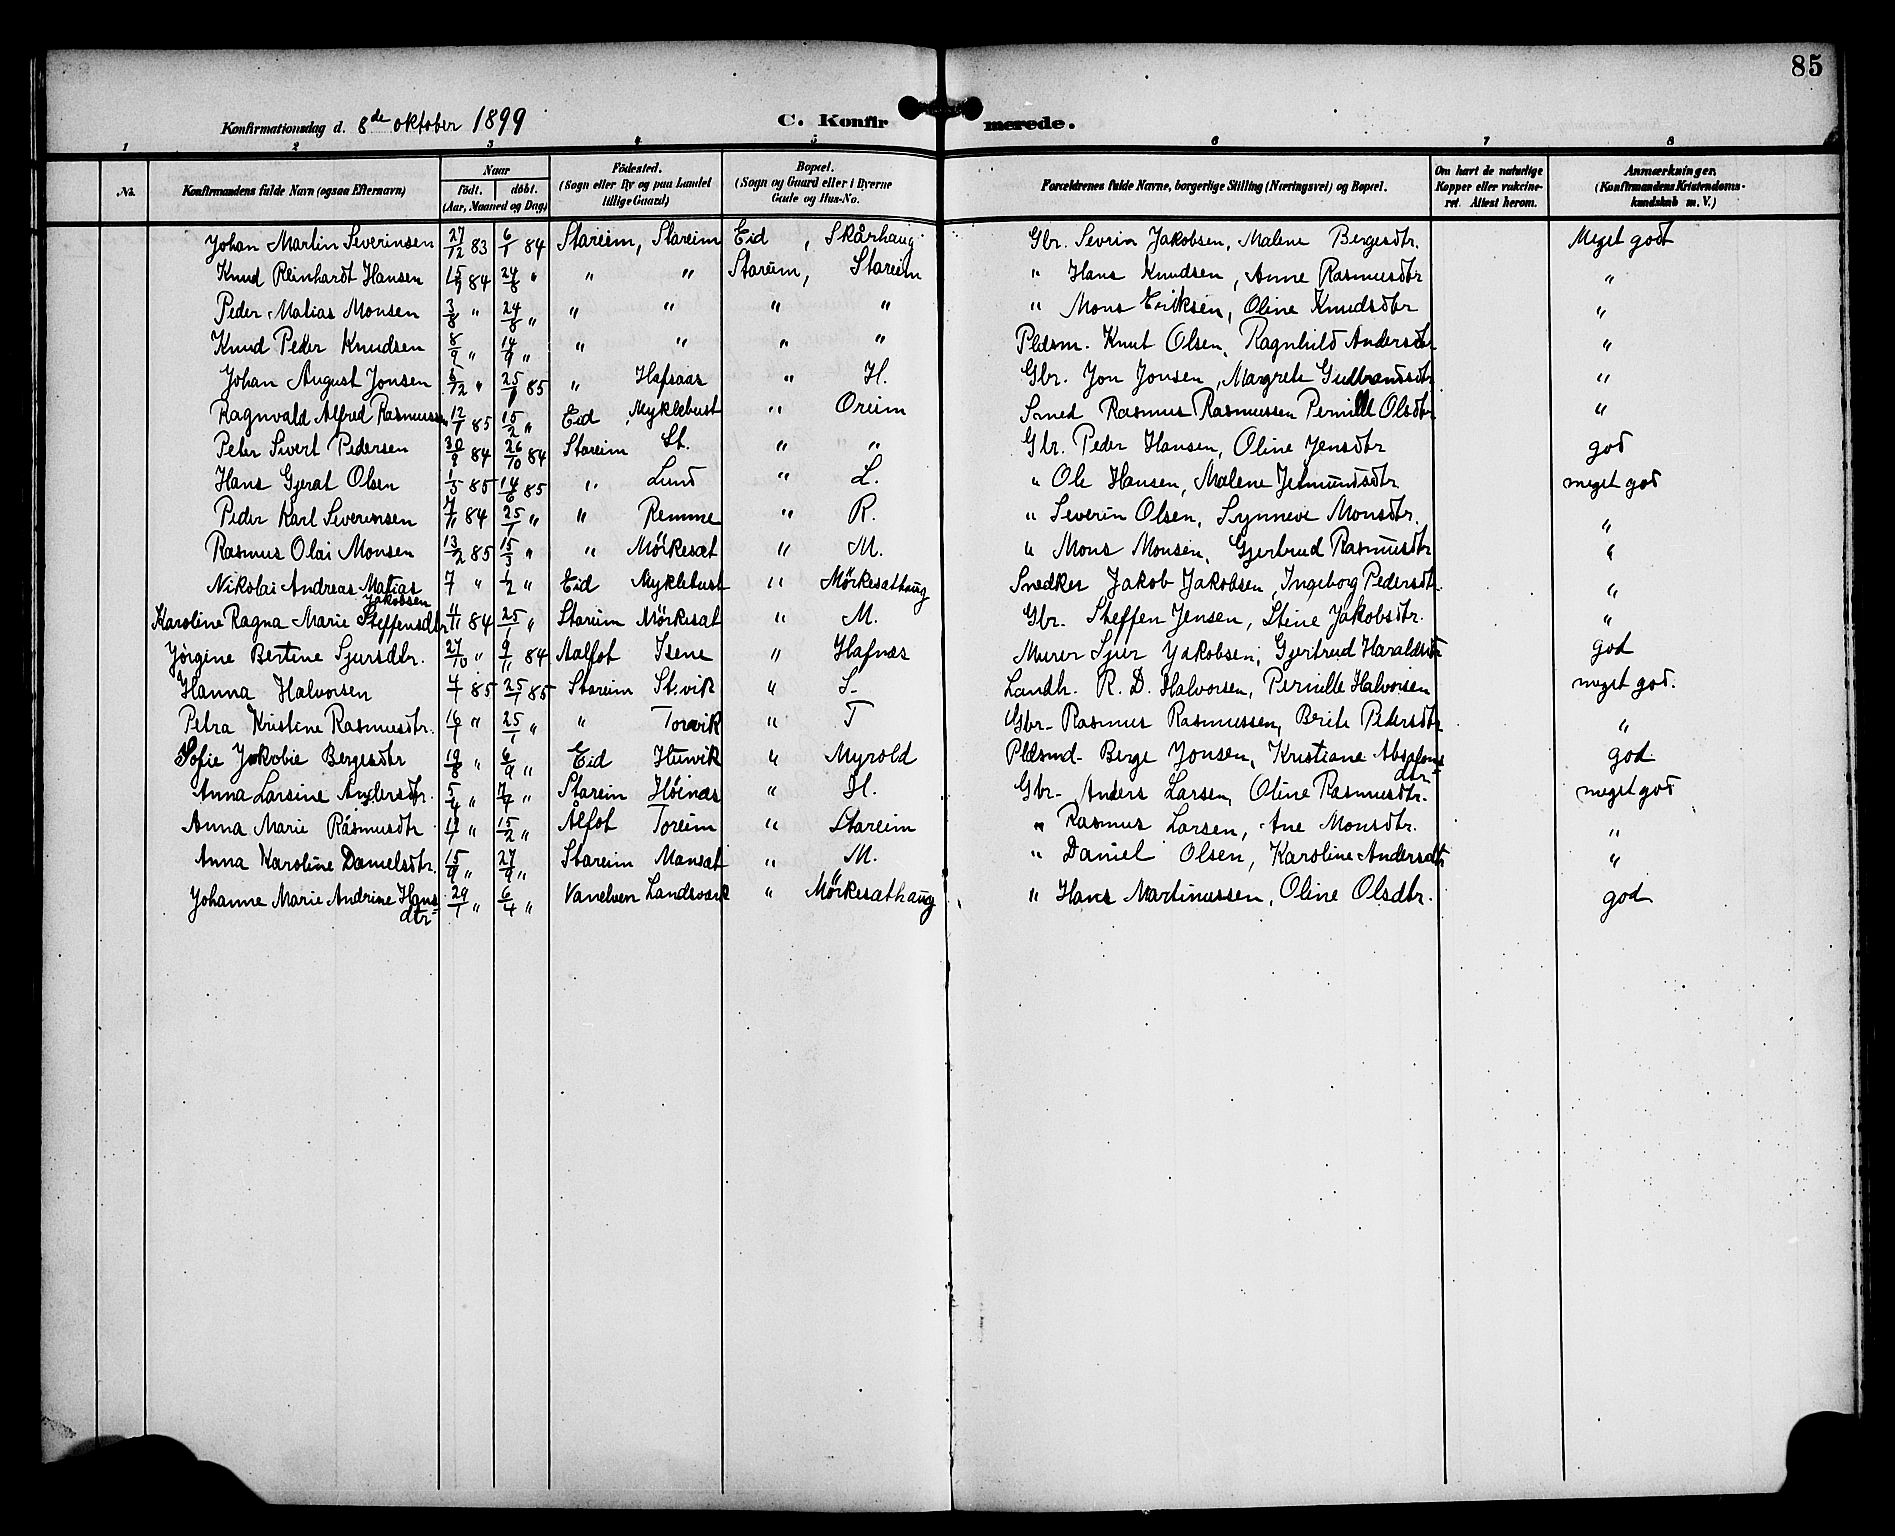 85
Konfirmationsdag d. 8de oktober 1899 C. Konfirmerede.
1 2 3 4 5 6 7 8
No. Konfirmandens fulde Navn (ogsaa Efternavn) Naar født. døbt. (Aar, Maaned og Dag) Fødested. (Sogn eller By og paa Landet tillige Gaard) Bopæl. (Sogn og Gaard eller i Byerne Gade og Hus-No. Forældrenes fulde Navne, borgerlige Stilling (Næringsvei) og Bopæl. Om havt de naturlige Kopper eller vakcineret. Attest herom. Anmærkninger. (Konfirmandens Kristendomskundskab m. V.)
Johan Martin Severinsen 27/12 83 6/1 84 Stareim, Stareim Eid, Skårhaug Gbr. Sevrin Jakobsen, Malene Bergesdtr. Meget godt
Knud Reinhardt Hansen 15/9 84 24/8 " " " Stareim, Stareim " Hans Knudsen, Anne Rasmusdtr "
Peder Matias Monsen 3/8 " 24/8 " " " " " " Mons Eriksen, Oline Knudsdtr "
Knud Peder Knudsen 8/9 " 14/9 " " " " " Pldsm. Knut Olsen, Ragnhild Andersdtr "
Johan August Jonsen /12 " 25/1 85 " Hafsaas " H. Gbr. Jon Jonsen, Margrete Gudbrandsdtr "
Ragnvald Alfred Rasmussen 12/1 85 15/2 " Eid, Myklebust " Oreim Smed Rasmus Rasmussen Pernille Olsdtr "
Peter Sivert Pedersen 30/9 84 26/10 84 Stareim St. " " Gbr. Peder Hansen, Oline Jensdtr god
Hans Gjerat Olsen 1/5 85 14/6 85 " Lund " L. " Ole Hansen, Malene Jetmundsdtr. meget god
Peder Karl Severinsen 7/11 84 25/1 " " Remme " R. " Severin Olsen, Synneve Monsdtr. "
Rasmus Olai Monsen 13/2 85 15/3 " " Mörkesæt " M. " Mons Monsen, Gjertrud Rasmusdtr "
Nikolai Andreas Matias Jakobsen 7 " 1/2 " Eid Myklebust " Mörkesæthaug Snedker Jakob Jakobsen, Ingeborg Pedersdtr. "
Karoline Ragna Marie Steffensdtr 11/11 84 25/1 " Stareim Mörkesæt " M. Gbr. Steffen Jensen, Stine Jakobsdtr. "
Jörgine Bertine Sjursdtr. 27/10 " 9/11 84 Aalfot Isene " Hafnæs Murer Sjur Jakobsen, Gjertrud Haraldsdtr god
Hanna Halvorsen 4/1 85 25/1 85 Stareim St.vik " S. Landh. R. D. Halvorsen, Pernille Halvorsen meget god.
Petra Kristine Rasmusdtr. 16/1 " 25/1 " " Torvik " T Gbr. Rasmus Rasmussen, Brite Pedersdtr "
Sofie Jakobie Bergesdtr 19/8 " 6/9 " Eid " Myrold Pldsmd. Berge Jonsen, Kristiane Absalonsdtr god
Anna Larsine Andersdtr. 5/4 " 7/7 " Stareim Höinæs " H. Gbr. Anders Larsen, Oline Rasmusdtr. meget god
Anna Marie Rasmusdtr 11/1 " 15/2 " Ålfot Toreim " Stareim " Rasmus Larsen, Ane Monsdtr. "
Anna Karoline Danielsdtr. 15/9 " 27/9 " Stareim Mansæt " M. " Daniel Olsen, Karoline Andersdtr "
Johanne Marie Andrine Hansdtr 29/1 " 6/4 " Vanelven Landsværk " Mörkesæthaug " Hans Martinussen, Oline Olsdtr. god